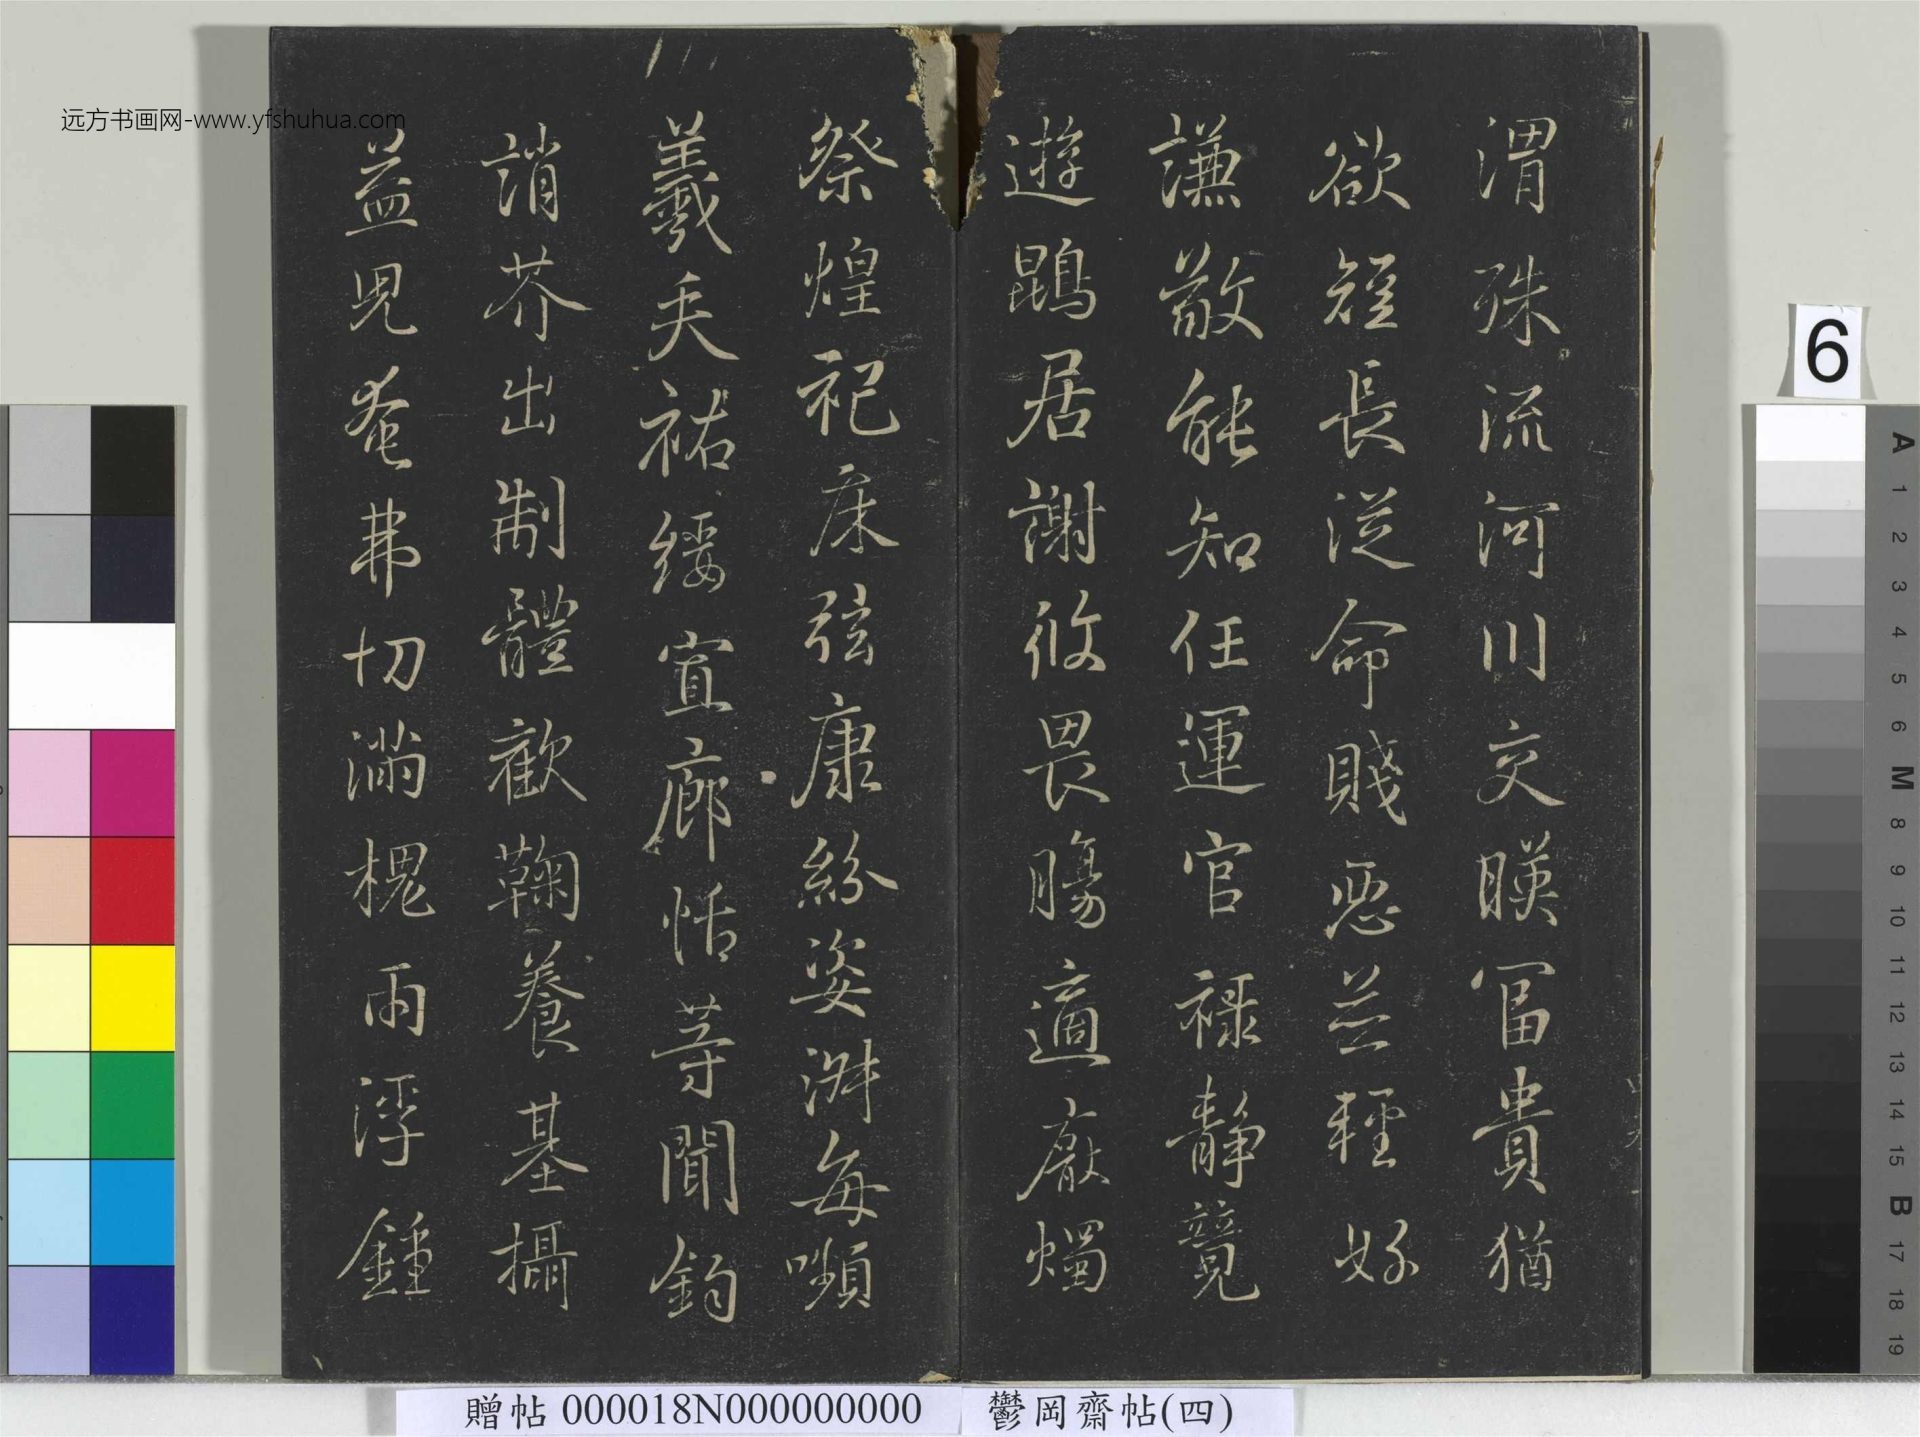 远方书画网-www.yfshuhua.com
渭殊流河川交暎冨貴猶
欲短長從命賤惡並輕好
謙敬能知任運官禄静競
遊鵾居謝攸畏腸適厭燭
祭煌祀床弦康紛姿淑每嚬
羲矢祐綏宜廊恬等聞鈞
誚芥出制體歡鞠養基攝
益兒奄弗切滿槐雨浮鍾
6
A 1 2 3 4 5 6 M 8 9 10 11 12 13 14 15 B 17 18 19
贈帖 000018N000000000
鬱岡齋帖(四)